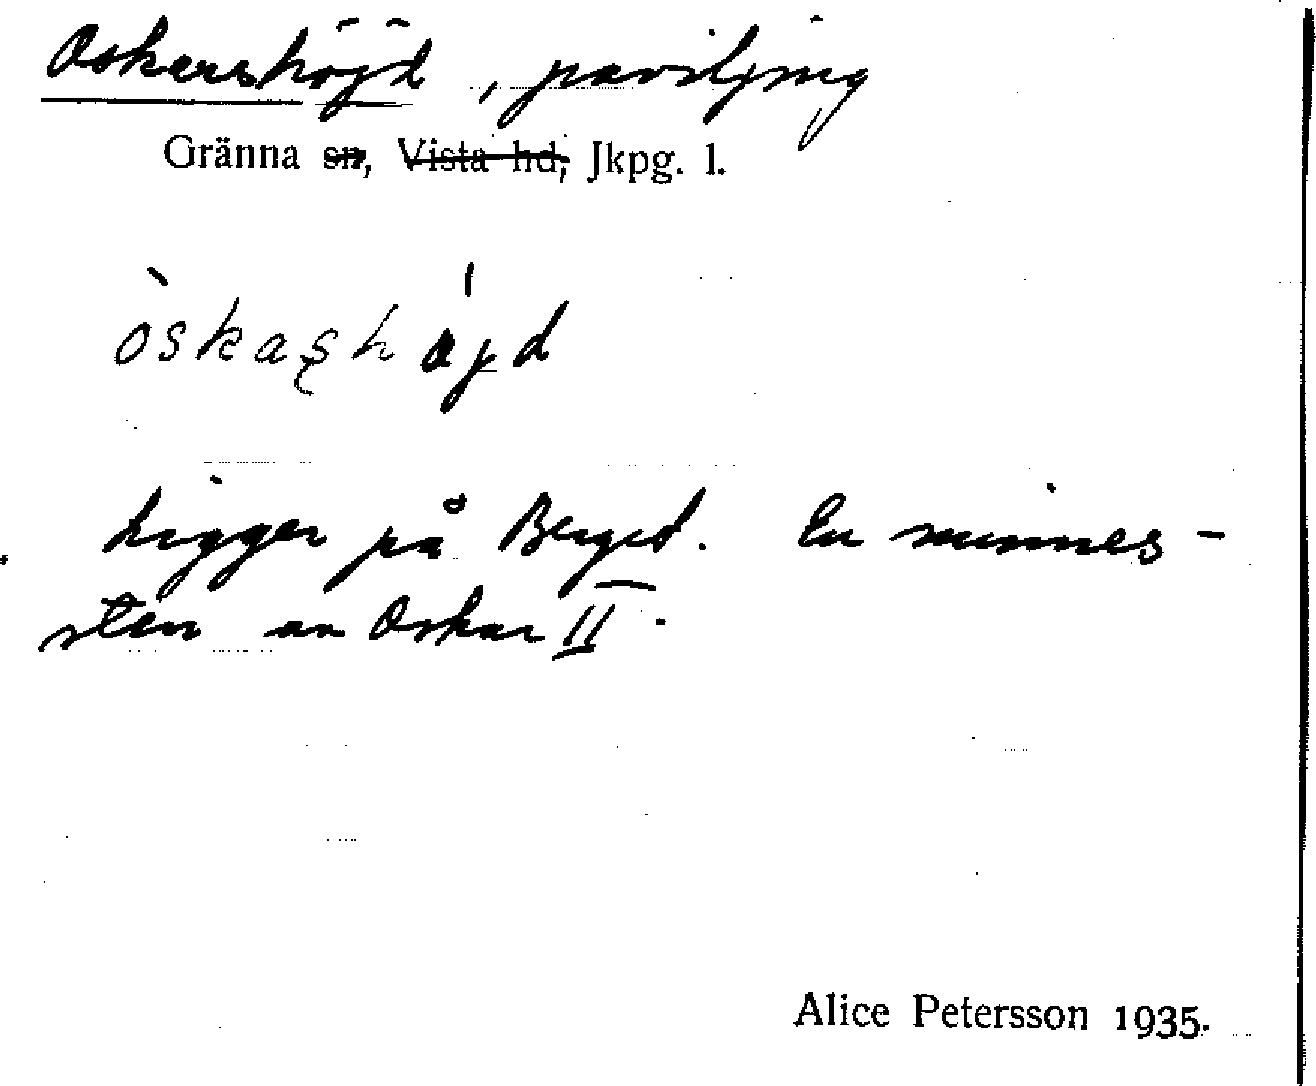 Oskarshöjd, paviljong
Gränna sn, Vista hd, Jkpg. l.
òskaʂhájd
Ligger på Berget. En minnes-
sten av Oskar II.
Alice Petersson 1935.